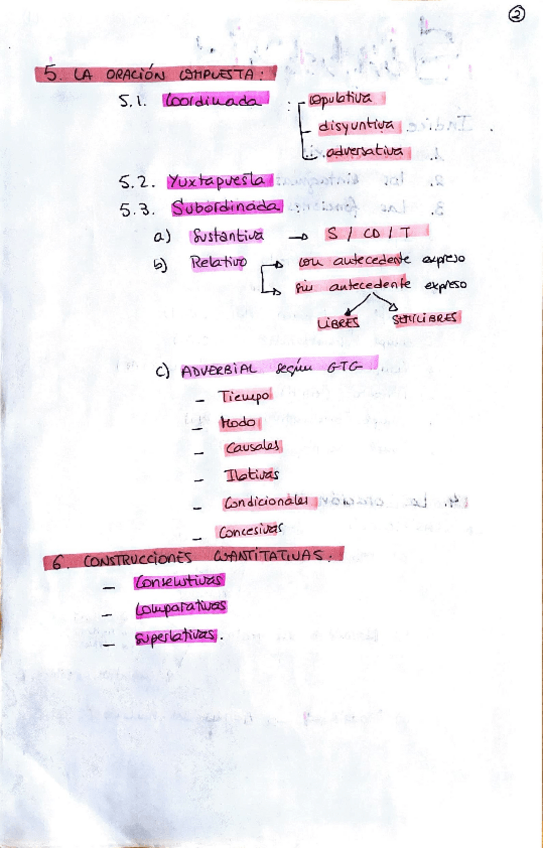 2
5. LA ORACIÓN COMPUESTA:
5.1. Coordinada : copulativa
disyuntiva
adversativa
5.2. Yuxtapuesta
5.3. Subordinada
a) Sustantiva → S / CD / T
b) Relativo → con antecedente expreso
→ sin antecedente expreso
LIBRES SEMILIBRES
c) ADVERBIAL según GTG
- Tiempo
- Modo
- Causales
- Ilativas
- Condicionales
- Concesivas
6. CONSTRUCCIONES CUANTITATIVAS:
- Consecutivas
- Comparativas
- Superlativas.